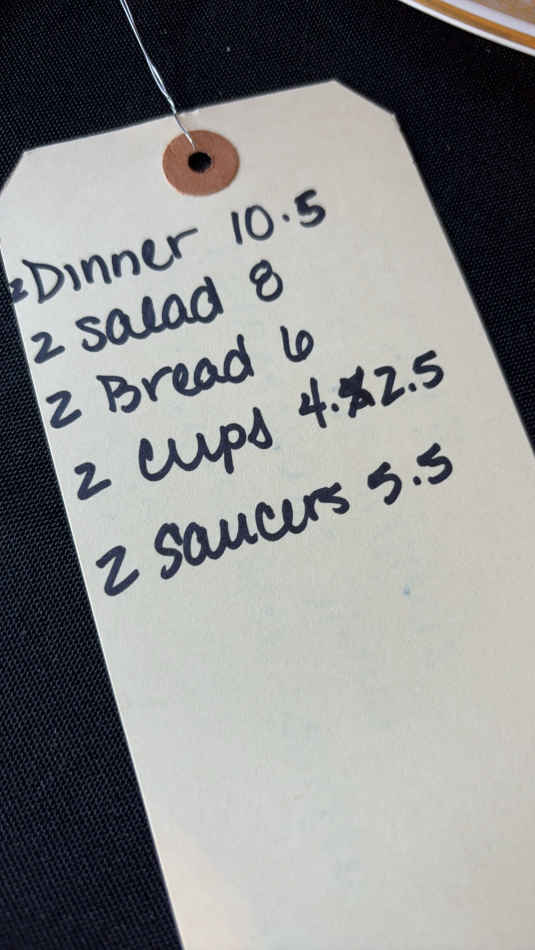 2 Dinner 10.5
2 salad 8
2 Bread 6
2 cups 4. 2.5
2 saucers 5.5